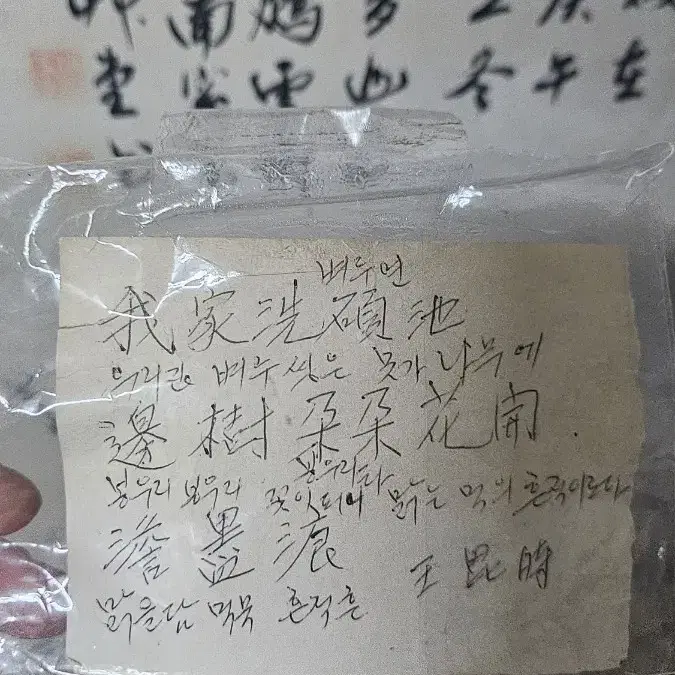 在
庚午
冬
벼루연
我家洗硯池
우리집 벼루 씻은 못가 나무에
邊樹朶朶花開.
봉우리타
봉우리 봉우리 꽃잎피니 맑은 먹의 흔적이로다
澹墨痕 王 時
맑을담 먹묵 흔적흔